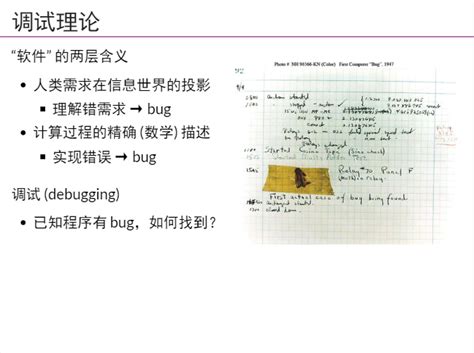 调试理论
“软件” 的两层含义
• 人类需求在信息世界的投影
▪ 理解错需求 → bug
• 计算过程的精确 (数学) 描述
▪ 实现错误 → bug
调试 (debugging)
• 已知程序有 bug，如何找到？
Photo # NH 96566-KN (Color) First Computer "Bug", 1947
92
9/9
andam started
stopped - andam
Relays
Started Cosine Tape (Sine check)
1545
Relay #70 Panel F
(moth) in relay.
First actual case of bug being found.
andam started.
closed down.